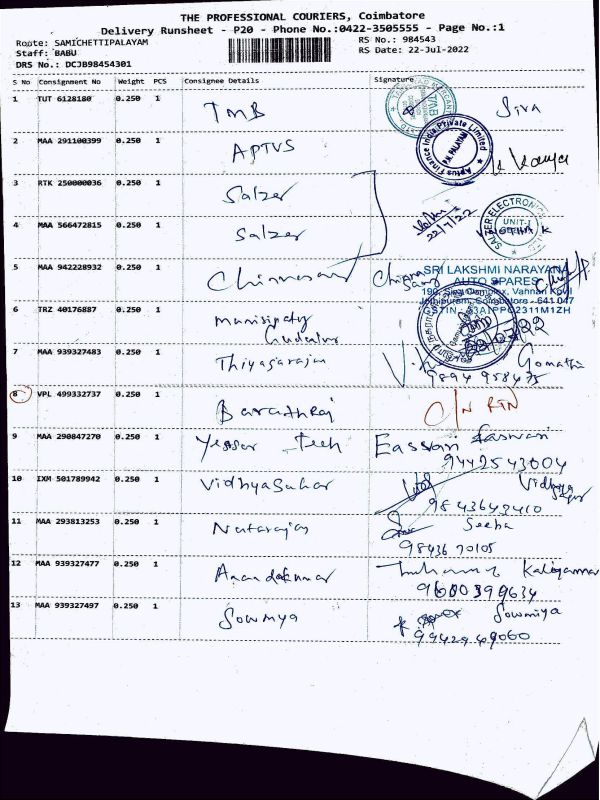 THE PROFESSIONAL COURIERS, Coimbatore
Delivery Runsheet - P20 - Phone No.:0422-3505555 - Page No.:1
Route: SAMICHETTIPALAYAM
Staff: BABU
DRS No.: DCJB98454301
RS No.: 984543
RS Date: 22-Jul-2022
S No Consignment No Weight PCS Consignee Details Signature
1 TUT 6128180 0.250 1 TMB Siva
2 MAA 291100399 0.250 1 APTUS
Aptus Finance India Private Limited
3 RTK 250000036 0.250 1 Salzer
4 MAA 566472815 0.250 1 Salzer 22/7/22
SALZER ELECTRONICS
UNIT-I
5 MAA 942228932 0.250 1
SRI LAKSHMI NARAYANA
AUTO SPARES
6 TRZ 40176887 0.250 1
Jothipuram, Coimbatore - 641 047
7 MAA 939327483 0.250 1 Thiyagarajan Gomathi
9894 958475
8 VPL 499332737 0.250 1 Barathraj C/N RTN
9 MAA 290847270 0.250 1 Yessar Tech Eassvari Easwari
9442543004
10 IXM 501789942 0.250 1 Vidhyasahar Vidhya
9843643410
11 MAA 293813253 0.250 1 Natarajan Seeba
9843670105
12 MAA 939327477 0.250 1 Anandakumar
9600399634
13 MAA 939327497 0.250 1 Sowmya Sowmiya
9942949060